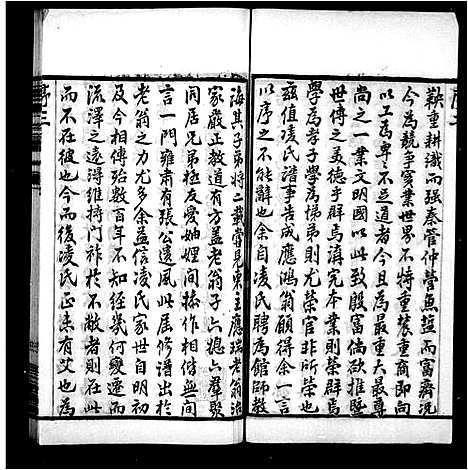 鞅重耕織而强秦管仲營魚鹽而富齊况
今為競爭實業世界不特重農重商即向
以工為卑卑不足道者今且為最重大最尊
尚之一業文明國以此致殷富倘欲推暨
世傳之美德手辟焉講究農業則榮辟焉
學為孝子學為悌弟則尤榮官非所榮也
兹值凌氏譜事告成應鴻翁顧得余一言
以序之不能辭也余自凌氏聘為館師教
海其子弟將二載常見東主應瑞老翁治
家嚴正教道有方盖老翁子六媳六羣聚
同居兄弟極友愛妯娌間操作相偕無間
言一門雍肅有張公遺風此居修譜出於
老翁之力尤多余益信凌氏家世自明初
及今相傳殆數百年不知經幾何變遷而
流澤之遠得維持門祚於不敝者則在此
而不在彼也今而後凌氏正未有艾也為
序三